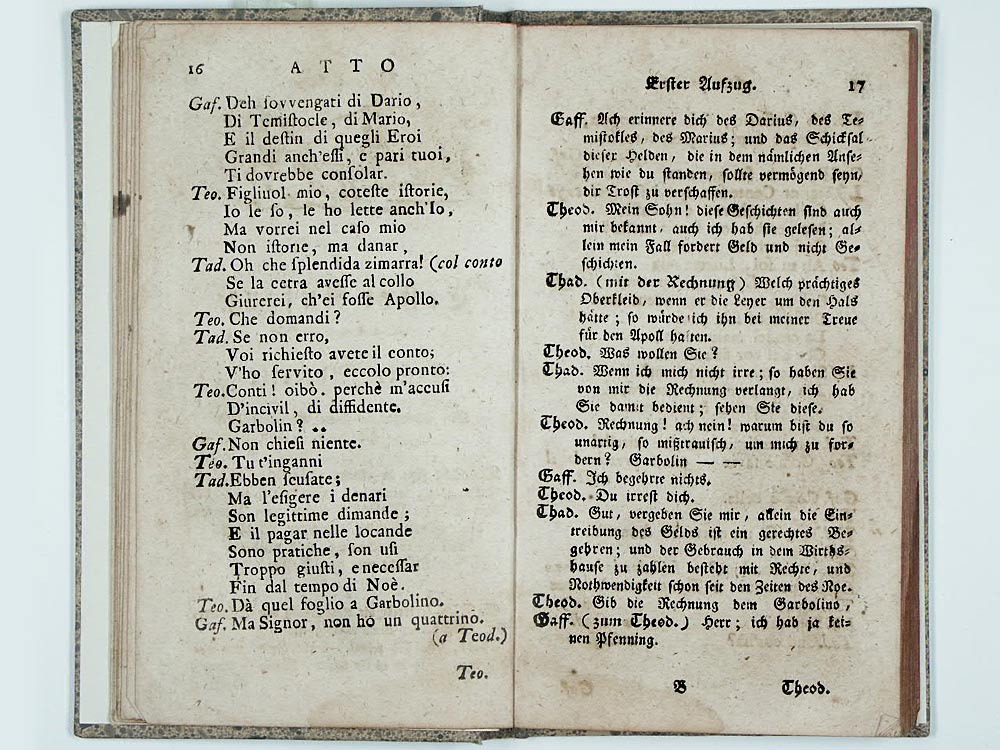 16 ATTO
Gaf. Deh ſovvengati di Dario,
Di Temiſtocle, di Mario,
E il deſtin di quegli Eroi
Grandi anch'eſſi, e pari tuoi,
Ti dovrebbe conſolar.
Teo. Figliuol mio, coteſte iſtorie,
Io le ſo, le ho lette anch'Io,
Ma vorrei nel caſo mio
Non iſtorie, ma danar,
Tad. Oh che ſplendida zimarra! (col conto
Se la cetra aveſſe al collo
Giurerei, ch'ei foſſe Apollo.
Teo. Che domandi?
Tad. Se non erro,
Voi richieſto avete il conto;
V'ho ſervito, eccolo pronto:
Teo. Conti! oibò. perchè m'accuſi
D'incivil, di diffidente.
Garbolin? ..
Gaf. Non chieſi niente.
Teo. Tu t'inganni
Tad. Ebben ſcuſate;
Ma l'eſigere i denari
Son legittime dimande;
E il pagar nelle locande
Sono pratiche, ſon uſi
Troppo giuſti, e neceſſar
Fin dal tempo di Noè.
Teo. Dà quel foglio a Garbolino.
Gaf. Ma Signor, non hò un quattrino.
(a Teod.)
Teo.
Erſter Aufzug. 17
Gaff. Ach erinnere dich des Darius, des Te-
miſtokles, des Marius; und das Schickſal
dieſer Helden, die in dem nämlichen Anſe-
hen wie du ſtanden, ſollte vermögend ſeyn,
dir Troſt zu verſchaffen.
Theod. Mein Sohn! dieſe Geſchichten ſind auch
mir bekannt, auch ich hab ſie geleſen; al-
lein mein Fall fordert Geld und nicht Ge-
ſchichten.
Thad. (mit der Rechnung) Welch prächtiges
Oberkleid, wenn er die Leyer um den Hals
hätte; ſo würde ich ihn bei meiner Treue
für den Apoll halten.
Theod. Was wollen Sie?
Thad. Wenn ich mich nicht irre; ſo haben Sie
von mir die Rechnung verlangt, ich hab
Sie damit bedient; ſehen Sie dieſe.
Theod. Rechnung! ach nein! warum biſt du ſo
unartig, ſo mißtrauiſch, um mich zu for-
dern? Garbolin — —
Gaff. Ich begehrte nichts.
Theod. Du irreſt dich.
Thad. Gut, vergeben Sie mir, allein die Ein-
treibung des Gelds iſt ein gerechtes Be-
gehren; und der Gebrauch in dem Wirths-
hauſe zu zahlen beſteht mit Rechte, und
Nothwendigkeit ſchon ſeit den Zeiten des Noe.
Theod. Gib die Rechnung dem Garbolino,
Gaff. (zum Theod.) Herr; ich hab ja kei-
nen Pfenning.
B Theod.